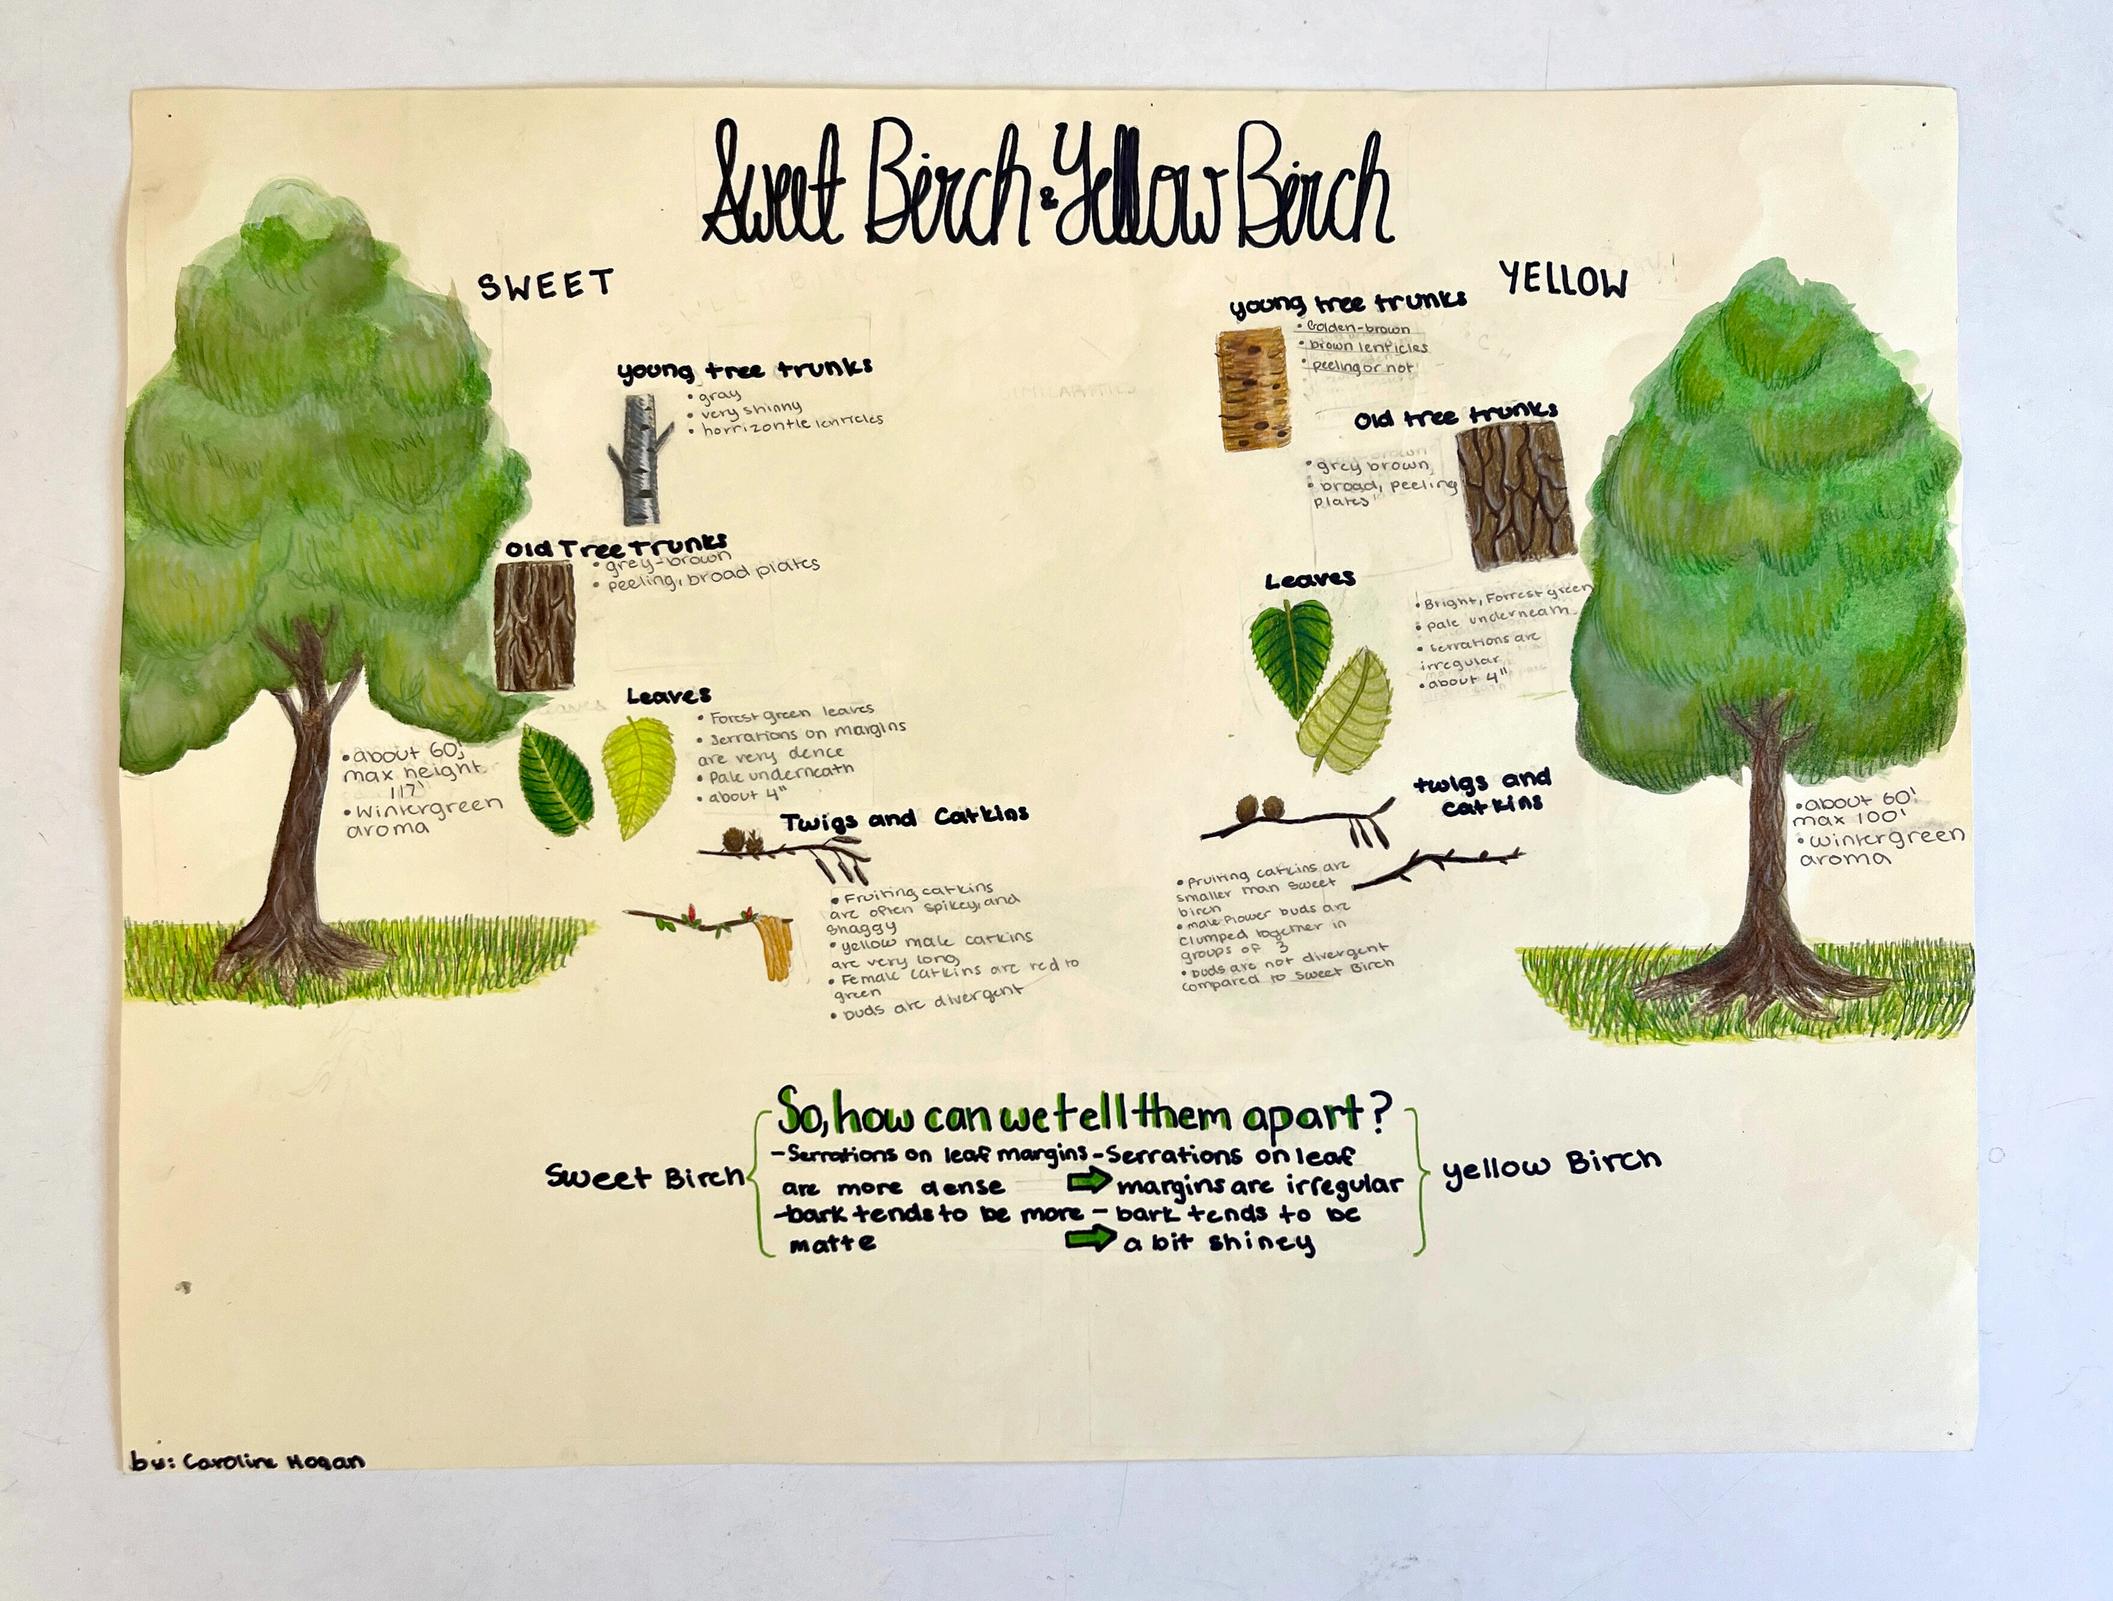 Sweet Birch & Yellow Birch
SWEET
young tree trunks
• gray
• very shinny
• horrizontle lenticles
Old Tree Trunks
• grey-brown
• peeling, broad plates
Leaves
• Forest green leaves
• Serrations on margins
are very dence
• Pale underneath
• about 4"
• about 60',
max height
117'
• Wintergreen
aroma
Twigs and Catkins
• Fruiting catkins
are often spikey, and
shaggy
• yellow male catkins
are very long
• Female catkins are red to
green
• buds are divergent
YELLOW
young tree trunks
• Golden-brown
• brown lenticles
• peeling or not
Old tree trunks
• grey brown,
• broad, peeling
plates
Leaves
• Bright, Forrest green
• pale underneath
• Serrations are
irregular
• about 4"
twigs and
catkins
• Fruiting catkins are
smaller than sweet
birch
• male flower buds are
clumped together in
groups of 3
• buds are not divergent
compared to Sweet Birch
• about 60'
max 100'
• wintergreen
aroma
So, how can we tell them apart?
Sweet Birch
-Serrations on leaf margins
are more dense
-bark tends to be more
matte
-Serrations on leaf
margins are irregular
- bark tends to be
a bit shiney
yellow Birch
by: Caroline Hogan